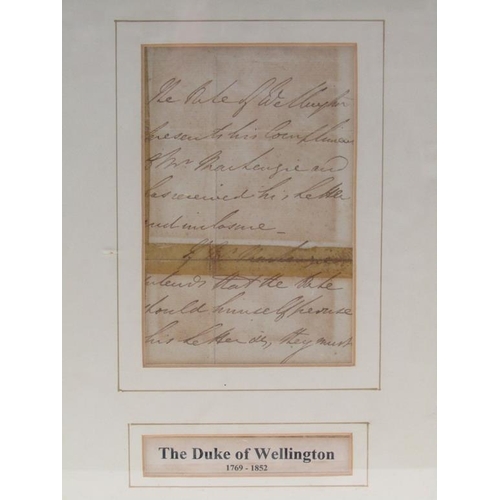 The Duke of Wellington
presents his Compliments
to Mr Mackenzie and
has received his Letter
and inclosure _
If Mr Mackenzie
intends that the Duke
should himself peruse
his Letter &c, they must
The Duke of Wellington
1769 - 1852